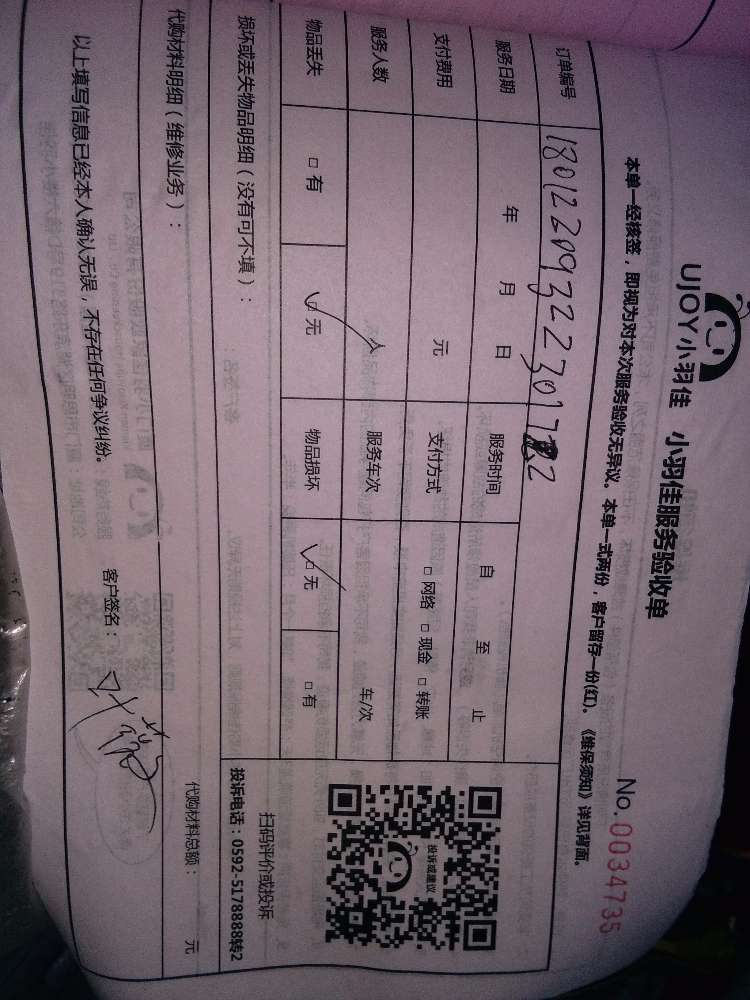 UJOY小羽佳 小羽佳服务验收单
No.0034735
本单一经核签，即视为对本次服务验收无异议。本单一式两份，客户留存一份(红)。《维保须知》详见背面。
订单编号
服务日期 年 月 日 服务时间 自 至 止
支付费用 元 支付方式 □ 网络 □ 现金 □ 转账
服务人数 人 服务车次 车/次
物品丢失 □ 有 □ 无 物品损坏 □ 无 □ 有
投诉或建议
扫码评价或投诉
投诉电话：0592-5178888转2
损坏或丢失物品明细（没有可不填）：
代购材料明细（维修业务）： 代购材料总额： 元
以上填写信息已经本人确认无误，不存在任何争议纠纷。 客户签名：